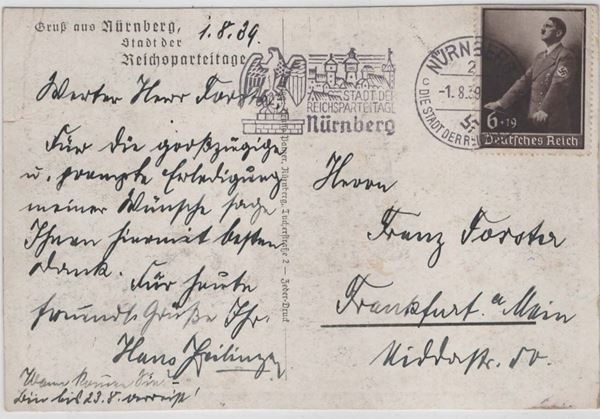 Gruß aus Nürnberg,
Stadt der
Reichsparteitage
1.8.39.
Werter Herr Forster
Für die großzügige
u. prompte Erledigung
meiner Wünsche sage
Ihnen hiermit besten
Dank. Für heute
freundl. Grüße Ihr
Hans Heilinger
Wann kommen Sie?
Bin bis 23.8. verreist!
STADT DER
REICHSPARTEITAGE
Nürnberg
NÜRNBERG
2
-1.8.39
DIE STADT DER RE
6+19
Deutsches Reich
Nürnberg, Tucherstraße 2 — Jeder-Druck
Herrn
Franz Forster
Frankfurt a Main
Niddastr. 50.